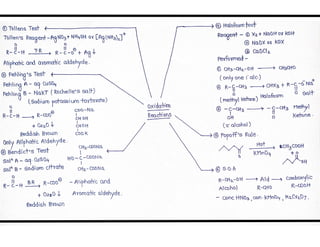 ① Tollens Test
Tollen's Reagent - Ag NO3 + NH4OH or [Ag(NH3)2]+
O
R-C-H T.R R-C-O⊖ + Ag↓
Aliphatic and aromatic aldehyde.
② Fehling's Test
Fehling A - aq CuSO4
Fehling B - NaKT (Rochelle's salt)
(Sodium potassium-tartrate)
O
R-C-H → R-COO⊖
+ Cu2O↓
Reddish Brown
COONa
CH-OH
CH-OH
COOK
Only Aliphatic Aldehyde.
③ Bendict's Test
Sol^n A - aq CuSO4
Sol^n B - Sodium citrate
CH2-COONa
HO-C-COONa
CH2-COONa
O
R-C-H B.R R-COO⊖
+ Cu2O↓
Reddish Brown
- Aliphatic and
Aromatic aldehyde.
Oxidation
Reactions
④ Haloform test
Reagent - ① X2 + NaOH or KOH
② NaOX or KOX
③ CaOCl2
Performed -
① CH3-CH2-OH → CH3CHO
(only one 1° alc)
② R-C-CH3 → CHX3 + R-C-O⊖Na⊕
O
(methyl ketone) Haloform Salt
③ CH3-C- → -C-CH3 Methyl
(2° alcohol) Ketone
⑤ Popoff's Rule.
Hot
KMnO4
CH3COOH
+
⑥ S.O.A
R-CH2-OH → Ald → Carboxylic
Alcohol R-CHO R-COOH
- conc. HNO3, con. KMnO4, K2Cr2O7.